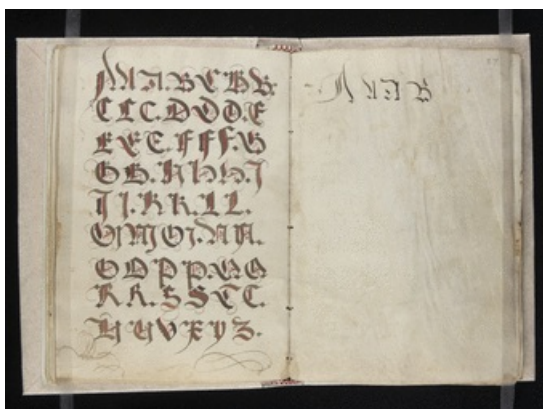 A A A. B B B B.
C C C. D D D. E
E E E. F F F. G
G G. H H H. I
I I. K K. L L.
M M M. N N.
O O P P. Q Q
R R. S S T T.
U U V X Y Z.
A A A B